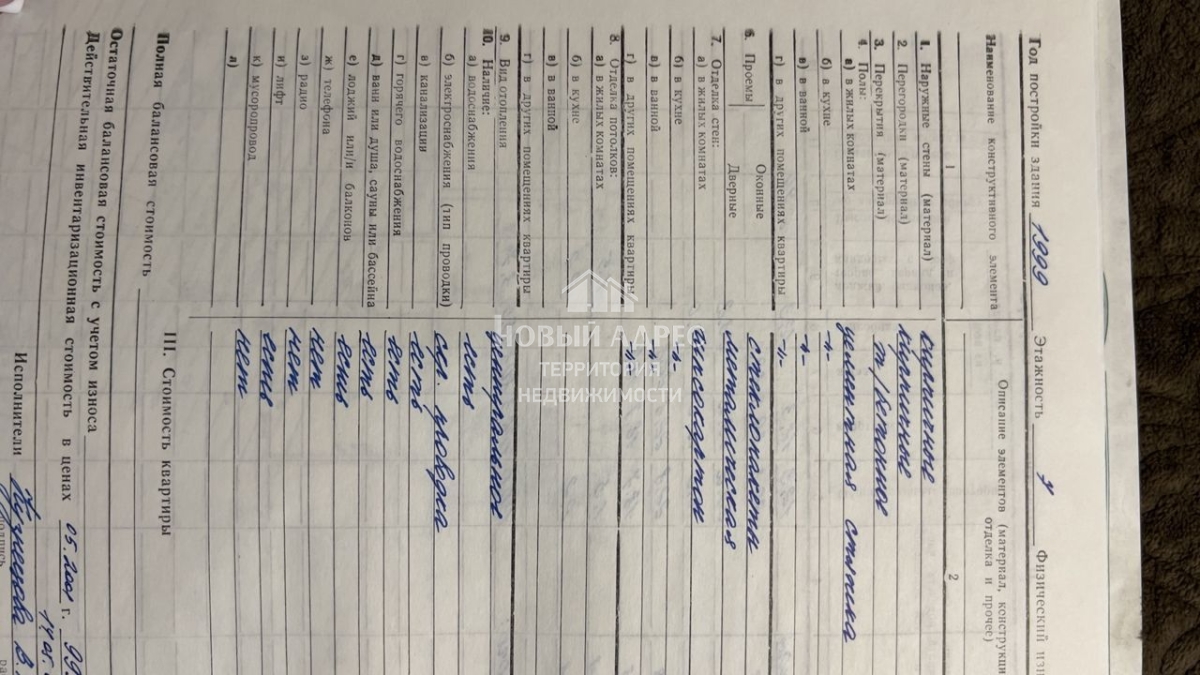 Год постройки здания 1999 Этажность 4 Физический изн
Наименование конструктивного элемента Описание элементов (материал, конструкци
отделка и прочее)
1 2
1. Наружные стены (материал) кирпичные
2. Перегородки (материал) кирпичные
3. Перекрытия (материал) ж/бетонное
4. Полы:
а) в жилых комнатах цементная стяжка
б) в кухне -"-
в) в ванной -"-
г) в других помещениях квартиры -"-
6. Проемы Оконные стеклопакеты
Дверные металлическая
7. Отделка стен:
а) в жилых комнатах гипсокартон
б) в кухне -"-
в) в ванной -"-
г) в других помещениях квартиры -"-
8. Отделка потолков:
а) в жилых комнатах
б) в кухне
в) в ванной
г) в других помещениях квартиры
9. Вид отопления центральное
10. Наличие:
а) водоснабжения есть
б) электроснабжения (тип проводки) скр. проводка
в) канализации есть
г) горячего водоснабжения есть
д) ванн или душа, сауны или бассейна есть
е) лоджий или/и балконов есть
ж) телефона нет
з) радио нет
и) лифт есть
к) мусоропровод нет
л)
III. Стоимость квартиры
Полная балансовая стоимость
Остаточная балансовая стоимость с учетом износа
Действительная инвентаризационная стоимость в ценах 05.2001 г. 99
Исполнители
НОВЫЙ АДРЕС
ТЕРРИТОРИЯ
НЕДВИЖИМОСТИ